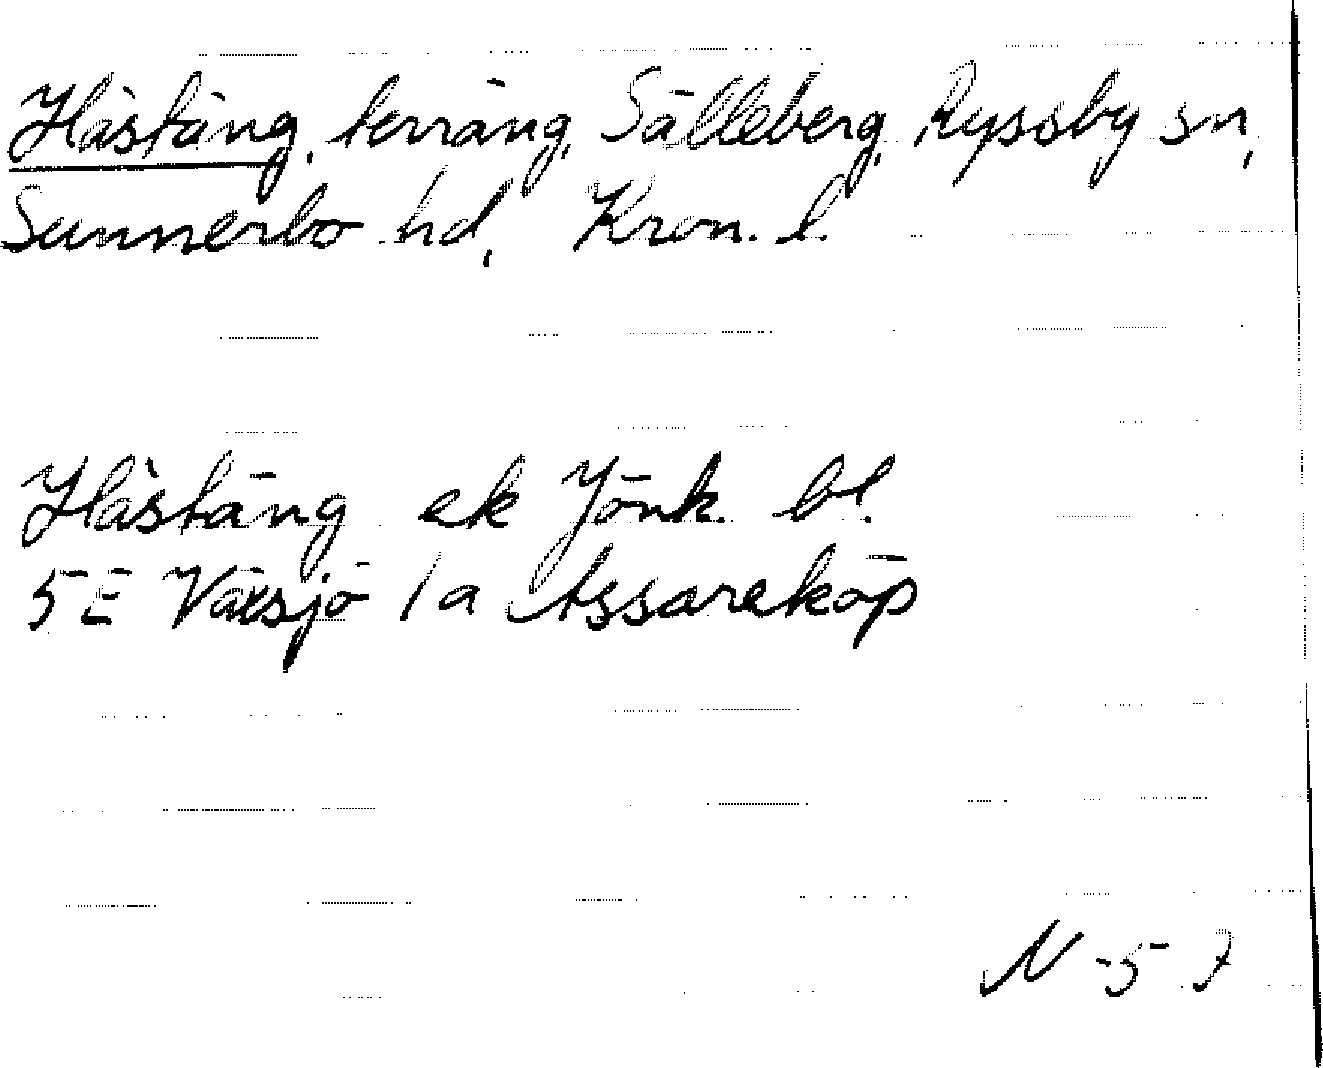 Håstäng, terräng, Sälleberg, Ryssby sn,
Sunnerbo hd, Kron. l.
Håstäng ek Jönk. bl.
5E Växsjö 1a Assareköp
N -5 7